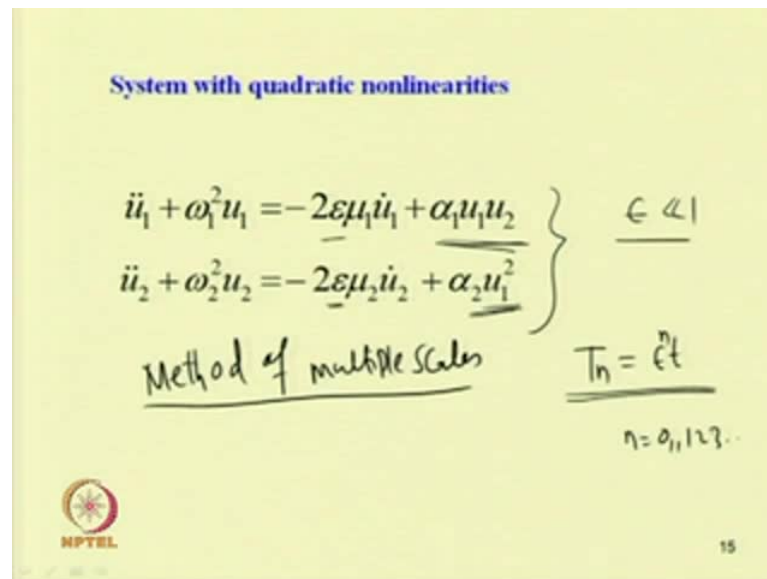 System with quadratic nonlinearities
ü₁ + ω₁²u₁ = − 2εμ₁u̇₁ + α₁u₁u₂
ü₂ + ω₂²u₂ = − 2εμ₂u̇₂ + α₂u₁²
ϵ ≪ 1
Method of multiple scales
Tₙ = ϵⁿt
n = 0,, 1 2 3..
NPTEL
15